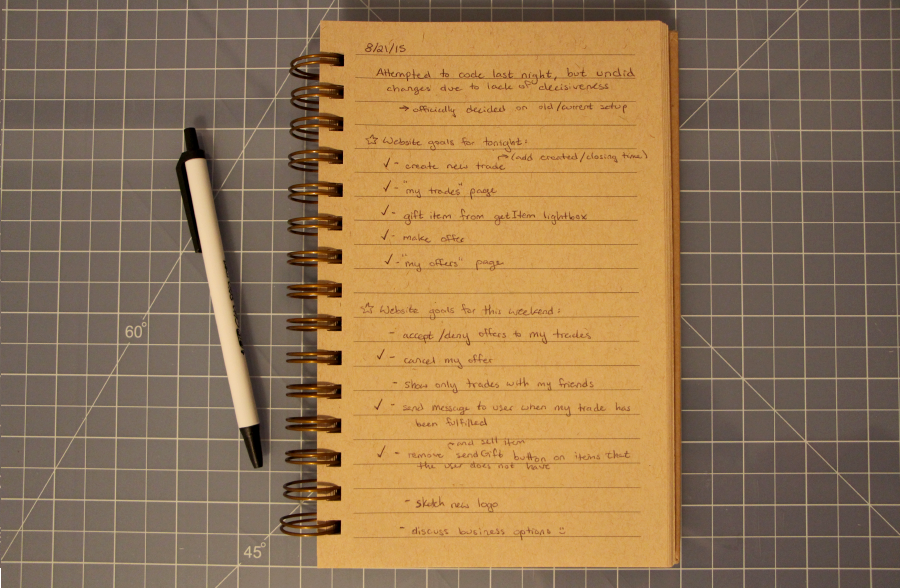 8/21/15
Attempted to code last night, but undid
changes due to lack of decisiveness
→ officially decided on old/current setup
☆ Website goals for tonight:
(add created/closing time)
✓ - create new trade
✓ - "my trades" page
✓ - gift item from getItem lightbox
✓ - make offer
✓ - "my offers" page
☆ Website goals for this weekend:
- accept/deny offers to my trades
✓ - cancel my offer
- show only trades with my friends
✓ - send message to user when my trade has
been fulfilled
and sell item
✓ - remove sendGift button on items that
the user does not have
- sketch new logo
- discuss business options :)
60°
45°